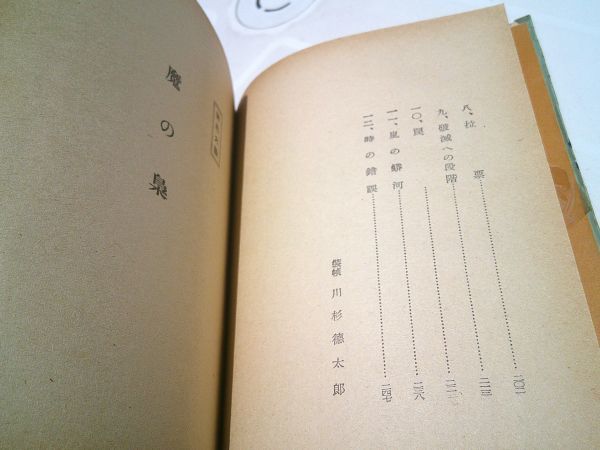 八、拉 票………二〇二
九、破滅への段階………
一〇、罠………
一一、の河………二三六
一二、時の錯誤………二四七
裝幀 川杉德太郎
魔の梟